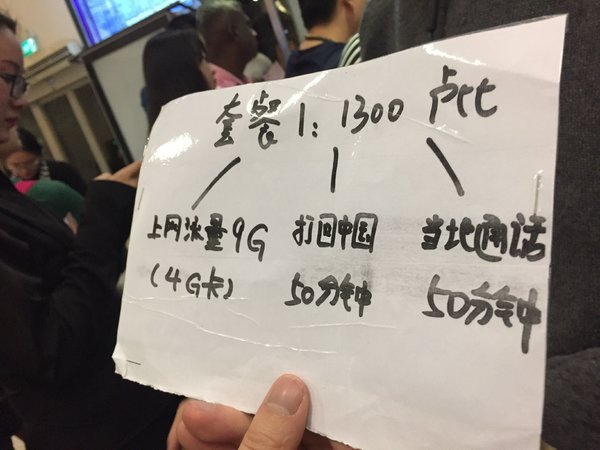 套餐1: 1300 卢比
上网流量9G
(4G卡)
打回中国
50分钟
当地通话
50分钟